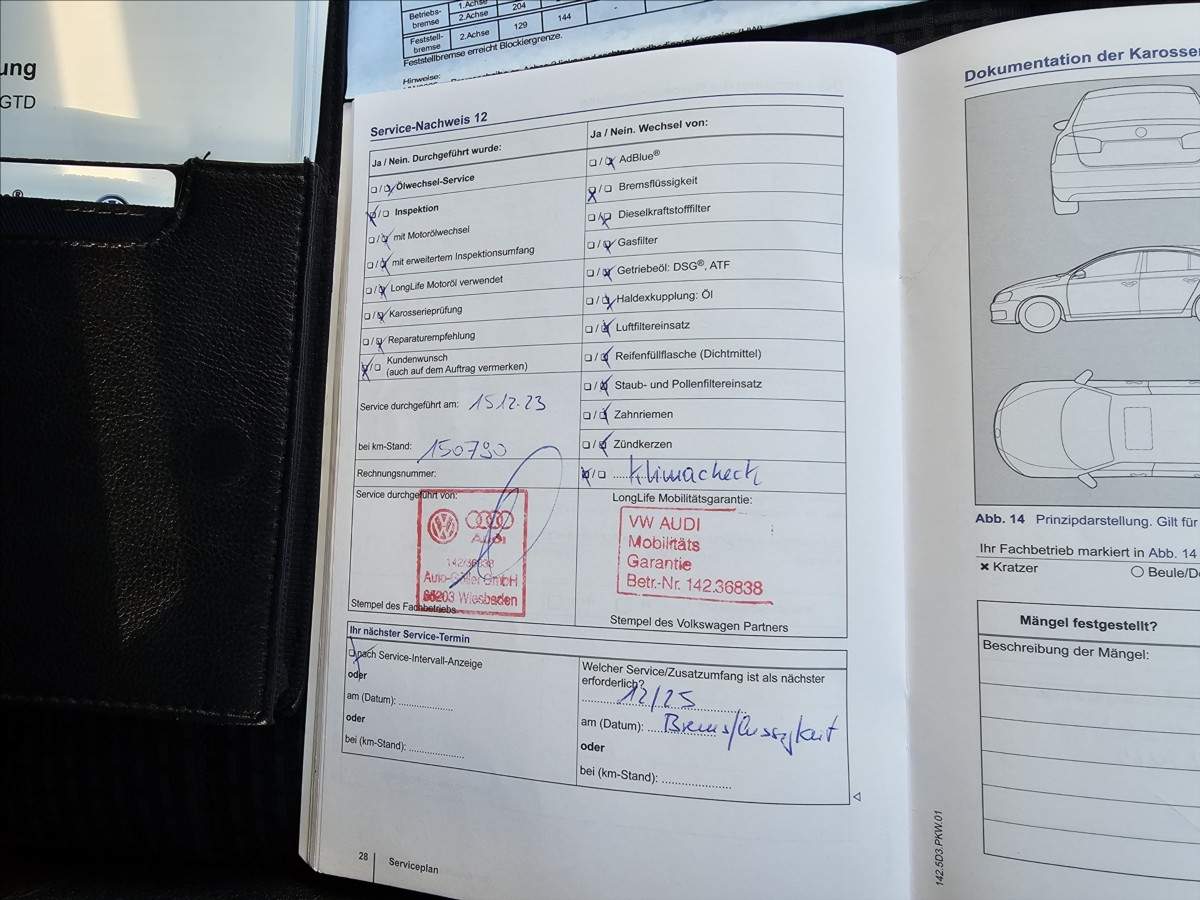 ung
GTD
Betriebs-
bremse
1.Achse
2.Achse
204
Feststell-
bremse
2.Achse
129
144
-
Feststellbremse erreicht Blockiergrenze.
Hinweise:
Service-Nachweis 12
Ja / Nein. Durchgeführt wurde:
❑ / ❑ Ölwechsel-Service
❑ / ❑ Inspektion
❑ / ❑ mit Motorölwechsel
❑ / ❑ mit erweitertem Inspektionsumfang
❑ / ❑ LongLife Motoröl verwendet
❑ / ❑ Karosserieprüfung
❑ / ❑ Reparaturempfehlung
❑ / ❑ Kundenwunsch
(auch auf dem Auftrag vermerken)
Service durchgeführt am: 15.12.23
bei km-Stand: 150790
Rechnungsnummer:
Service durchgeführt von:
AUDI
142/36838
Auto-Göller GmbH
65203 Wiesbaden
Stempel des Fachbetriebs
Ja / Nein. Wechsel von:
❑ / ❑ AdBlue®
❑ / ❑ Bremsflüssigkeit
❑ / ❑ Dieselkraftstofffilter
❑ / ❑ Gasfilter
❑ / ❑ Getriebeöl: DSG®, ATF
❑ / ❑ Haldexkupplung: Öl
❑ / ❑ Luftfiltereinsatz
❑ / ❑ Reifenfüllflasche (Dichtmittel)
❑ / ❑ Staub- und Pollenfiltereinsatz
❑ / ❑ Zahnriemen
❑ / ❑ Zündkerzen
❑ / ❑ Klimacheck
LongLife Mobilitätsgarantie:
VW AUDI
Mobilitäts
Garantie
Betr.-Nr. 142.36838
Stempel des Volkswagen Partners
Ihr nächster Service-Termin
❑ nach Service-Intervall-Anzeige
oder
am (Datum): ................
oder
bei (km-Stand): ................
Welcher Service/Zusatzumfang ist als nächster
erforderlich?
12/25
am (Datum): Bremsflüssigkeit
oder
bei (km-Stand): ....................
28
Serviceplan
Dokumentation der Karosser
Abb. 14 Prinzipdarstellung. Gilt für
Ihr Fachbetrieb markiert in Abb. 14
✖ Kratzer
○ Beule/De
Mängel festgestellt?
Beschreibung der Mängel:
142.5D3.PKW.01